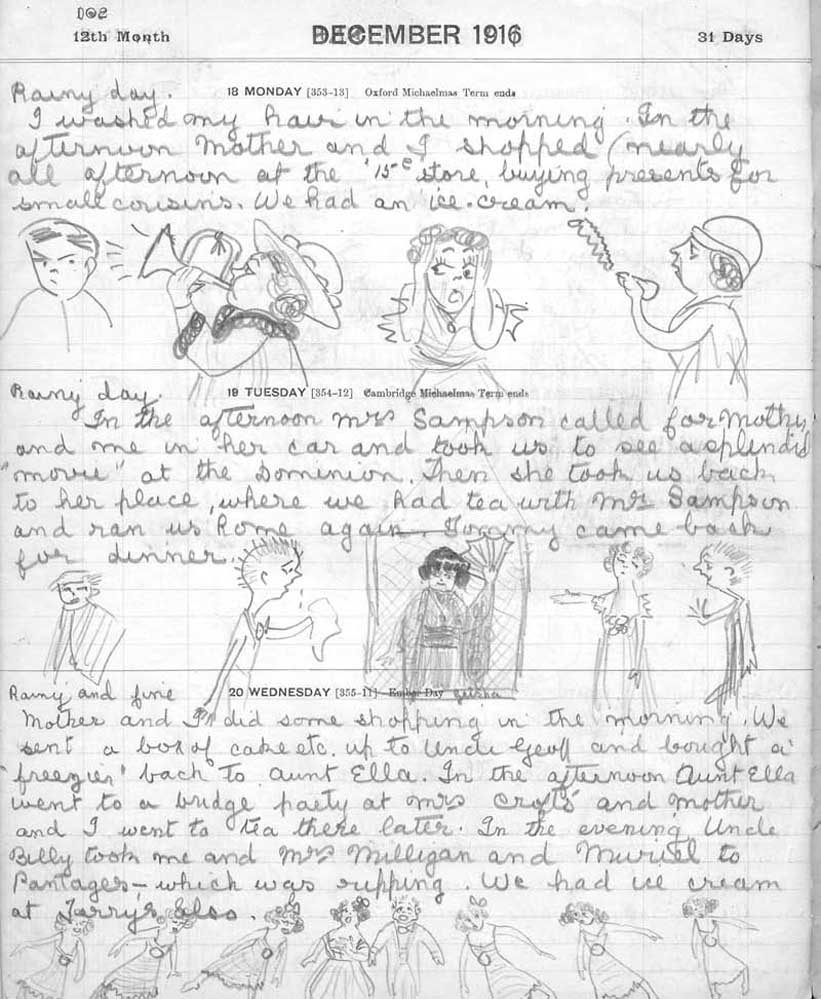 DEC
12th Month DECEMBER 1916 31 Days
Rainy day. 18 MONDAY [353-13] Oxford Michaelmas Term ends
I washed my hair in the morning. In the
afternoon Mother and I shopped (nearly
all afternoon at the '15c store, buying presents for
small cousins. We had an ice-cream.
Rainy day. 19 TUESDAY [354-12] Cambridge Michaelmas Term ends
In the afternoon Mrs Sampson called for Mother
and me in her car and took us to see a splendid
"movie" at the Dominion. Then she took us back
to her place, where we had tea with Mrs Sampson
and ran us home again. Tommy came back
for dinner.
Rainy and fine 20 WEDNESDAY [355-11] Ember Day geisha
Mother and I did some shopping in the morning. We
sent a box of cake etc. up to Uncle Geoff and bought a
'freezier' back to Aunt Ella. In the afternoon Aunt Ella
went to a bridge party at Mrs Crofts' and Mother
and I went to tea there later. In the evening Uncle
Billy took me and Mrs Milligan and Muriel to
Pantages – which was ripping. We had ice cream
at Terry's also.